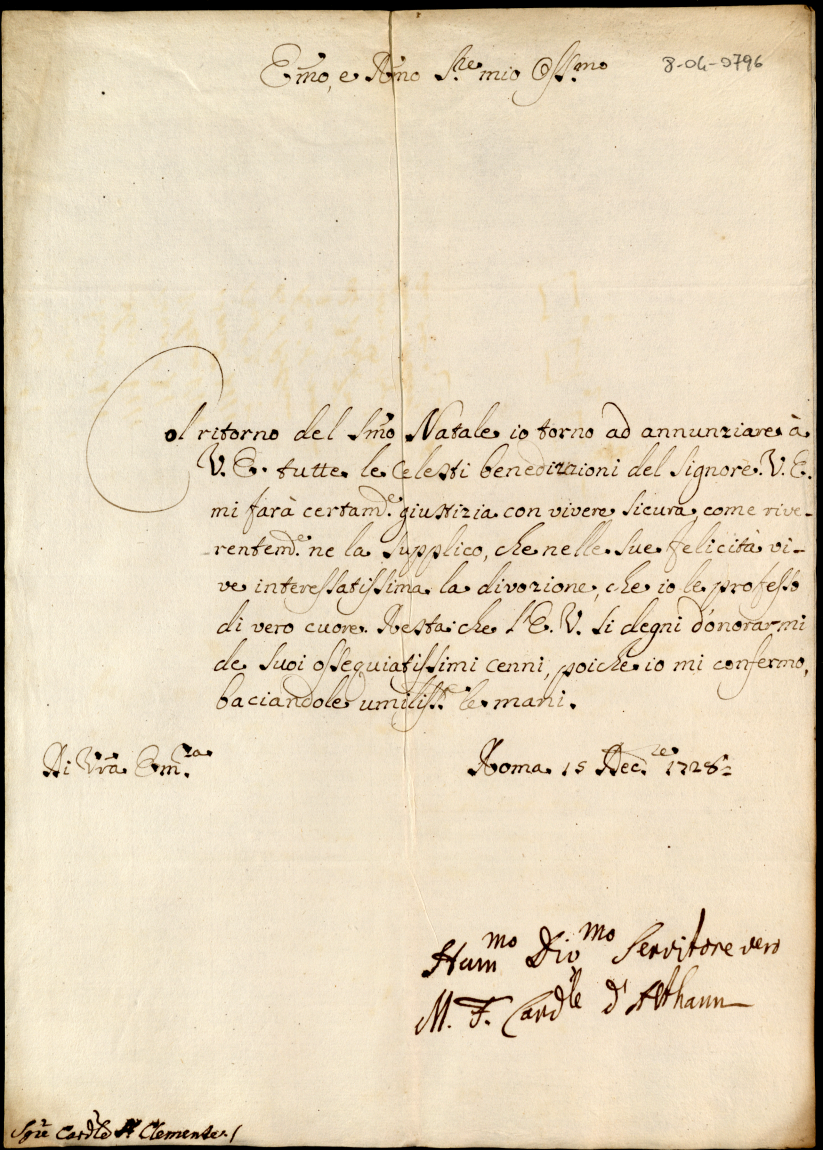 Emo, e Rmo Sre mio Ossmo
8-04-0796
Col ritorno del Smo Natale io torno ad annunziare à
V. E. tutte le Celesti benedizzioni del Signore. V. E.
mi farà certamde giustizia con vivere sicura come rive-
rentemde ne la supplico, che nelle sue felicità vi-
ve interessatissima la divozione, che io le professo
di vero cuore. Resta che l'E. V. si degni d'onorarmi
de suoi ossequiatissimi cenni, poiche io mi confermo,
baciandole umilisste le mani.
Di Vrã Emza
Roma 15 Decre 1728
Hummo Divmo Servitore vero
M. F. Cardle d'Althann
Sigre Cardle Clemente /